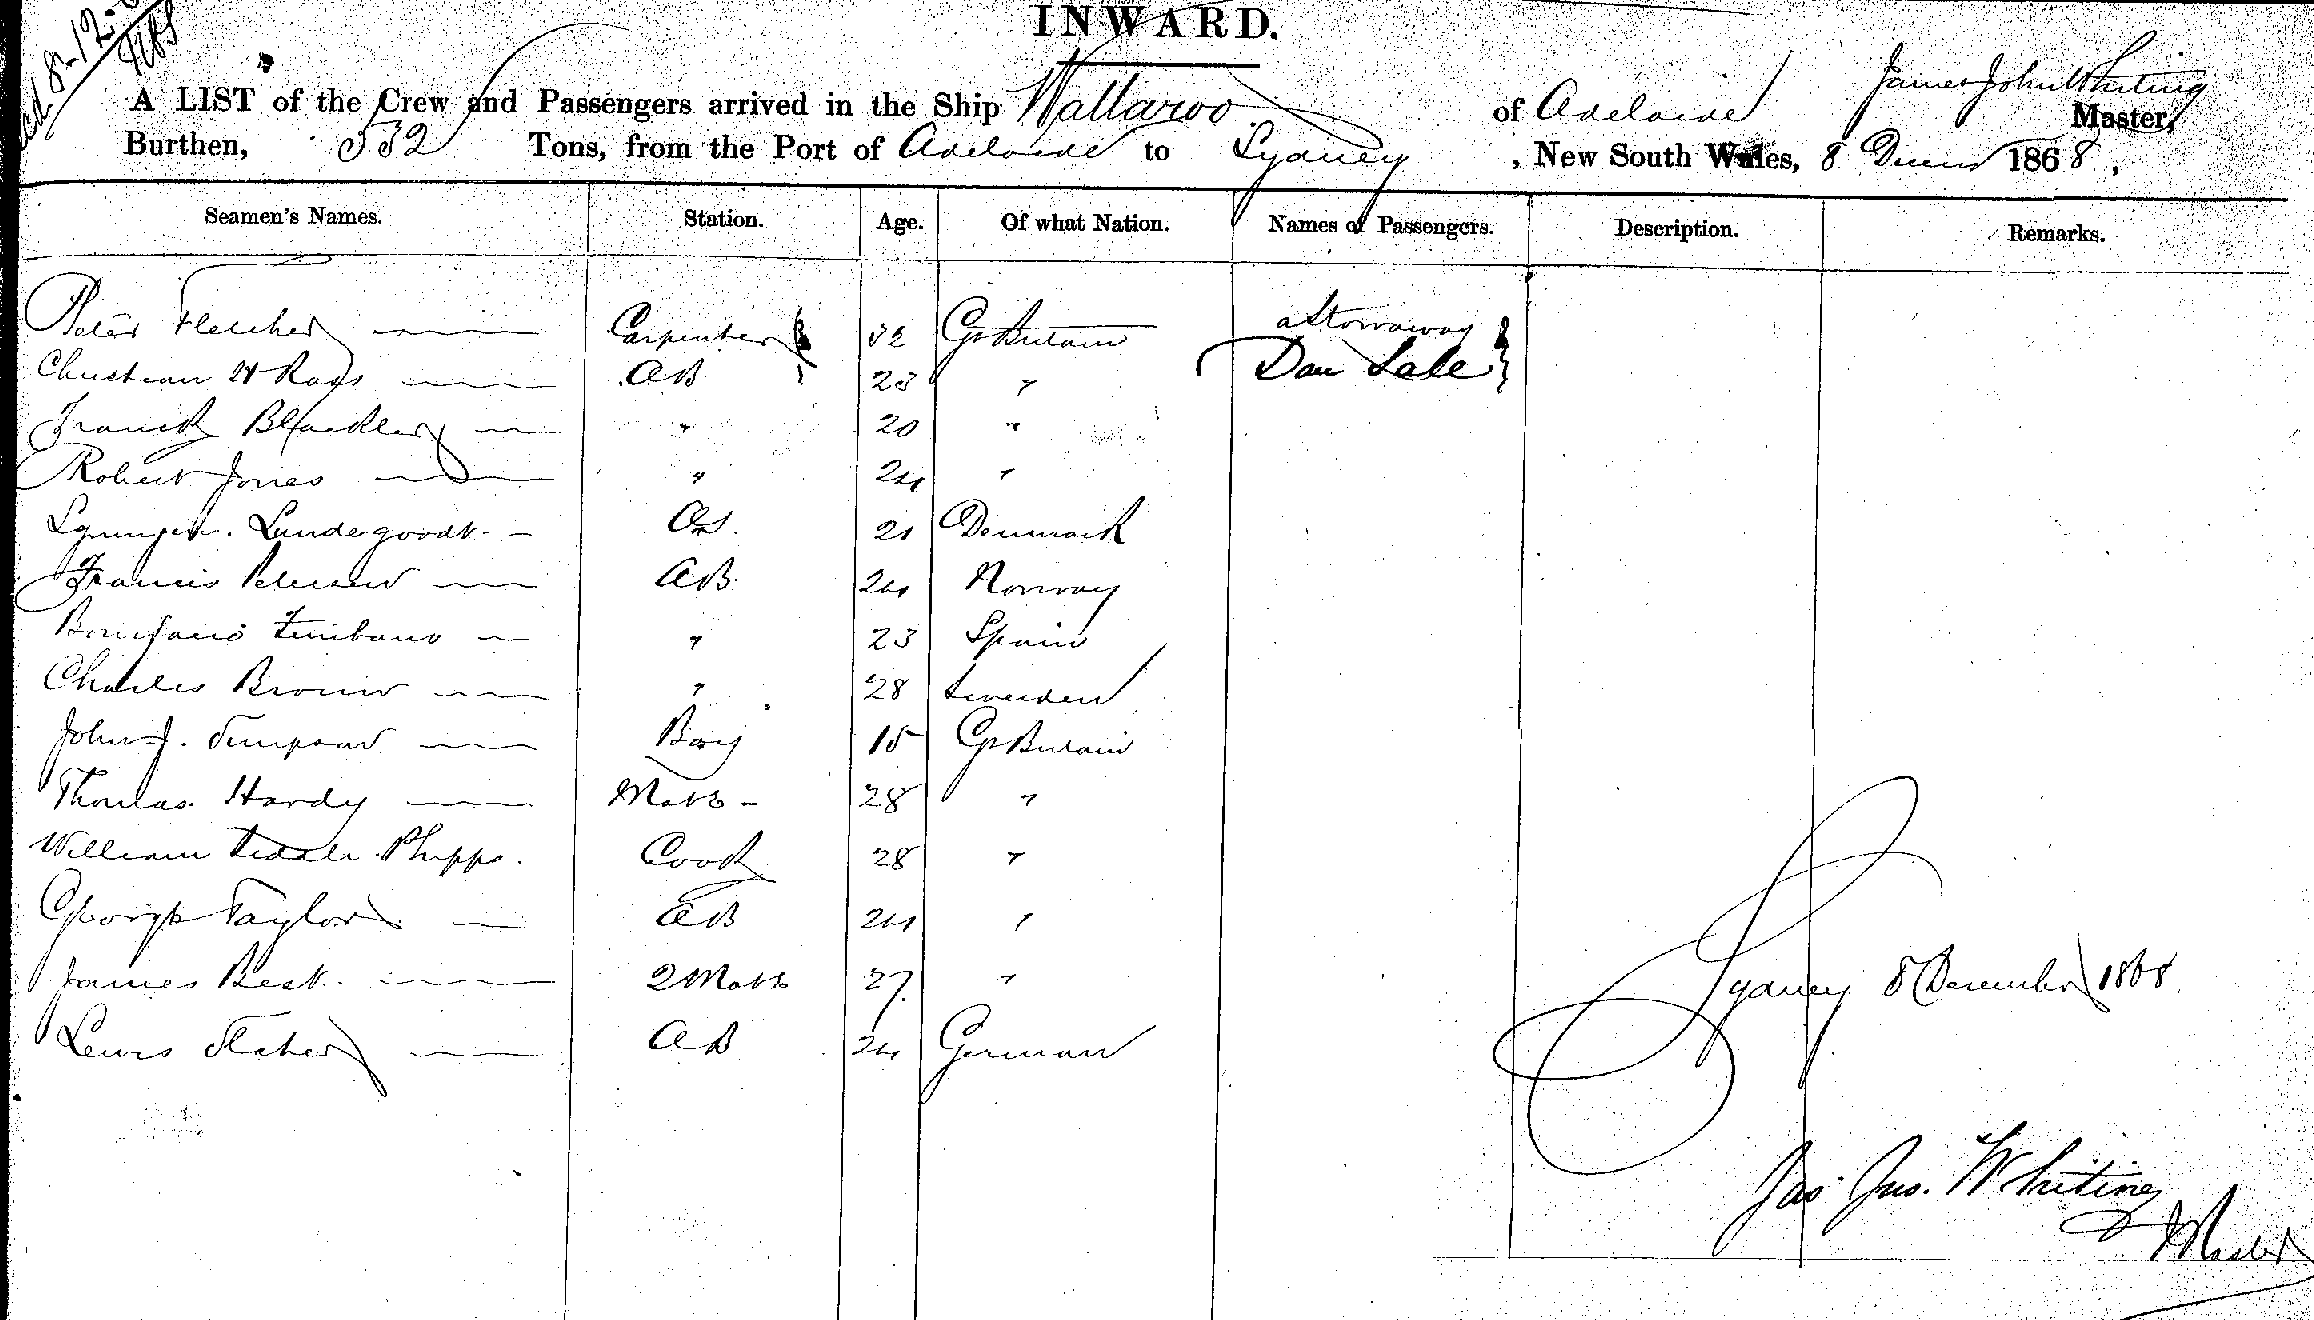 INWARD.
A LIST of the Crew and Passengers arrived in the Ship Wallaroo of Adelaide James John Whiting Master,
Burthen, 532 Tons, from the Port of Adelaide to Sydney, New South Wales, 8 Decem 1868,
Seamen's Names. Station. Age. Of what Nation. Names of Passengers. Description. Remarks.
Peter Fletcher Carpenter 32 Gt Britain a Stowaway
Christian AB 23 " Dan Sale
Franck " 20 "
Robert Jones " 24 "
OS. 21 Denmark
Francis AB 24 Norway
" 23 Spain
Charles Brown " 28 Sweden
John J. Simpson Boy 15 Gt Britain
Thomas Hardy Mate 28 "
William Phipps. Cook 28 "
George Taylor AB 24 "
James Best. 2 Mate 27 "
Lewis AB 24 German
Sydney 8 December 1868
Jas Jno. Whiting
Master